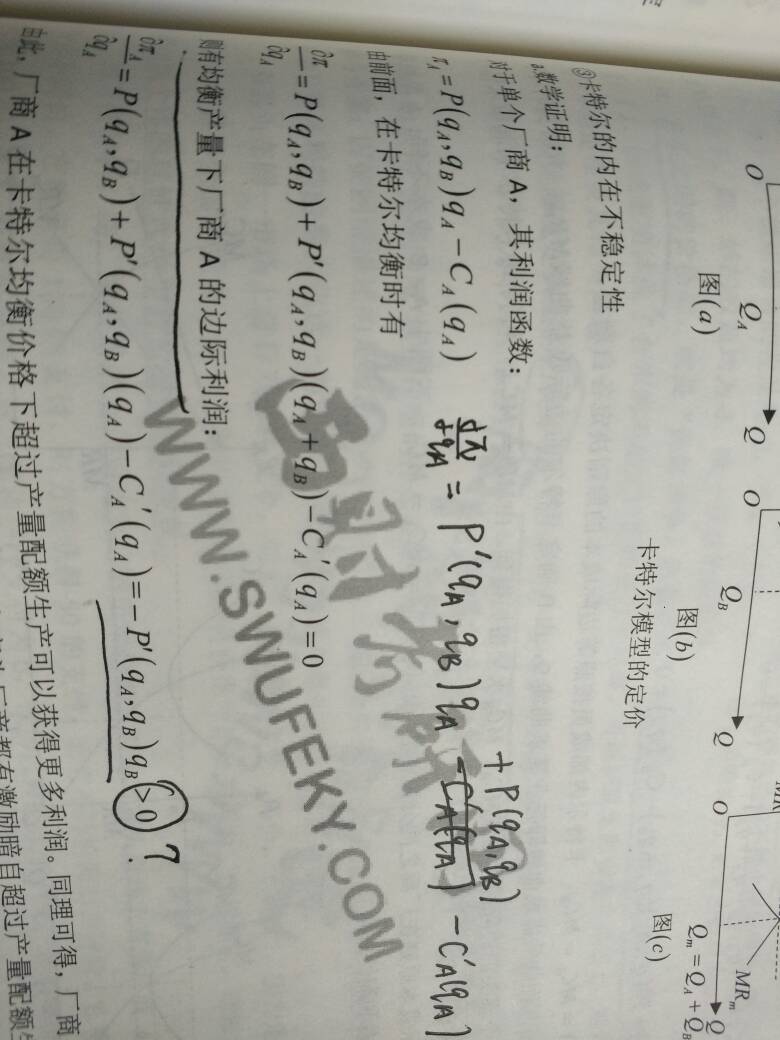 O
Q_A
Q
O
Q_B
Q
O
Q_m = Q_A + Q_B
Q
MR_m
图(a)
图(b)
图(c)
卡特尔模型的定价
③卡特尔的内在不稳定性
a.数学证明：
对于单个厂商 A，其利润函数：
π_A = P(q_A, q_B)q_A − C_A(q_A)
dπ/dq_A = P′(q_A, q_B)q_A + P(q_A, q_B) − C′_A(q_A)
由前面，在卡特尔均衡时有
∂π/∂q_A = P(q_A, q_B) + P′(q_A, q_B)(q_A + q_B) − C_A′(q_A) = 0
则有均衡产量下厂商 A 的边际利润：
∂π_A/∂q_A = P(q_A, q_B) + P′(q_A, q_B)(q_A) − C_A′(q_A) = − P′(q_A, q_B)q_B > 0 ?
由此，厂商 A 在卡特尔均衡价格下超过产量配额生产可以获得更多利润。同理可得，厂商
厂商都有激励暗自超过产量配额生
WWW.SWUFEKY.COM